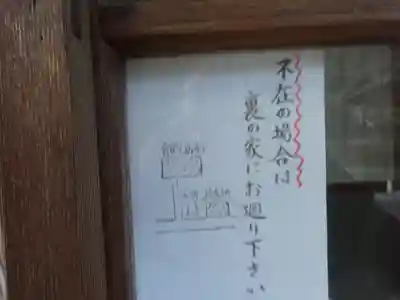 不在の場合は
裏の家にお廻り下さい